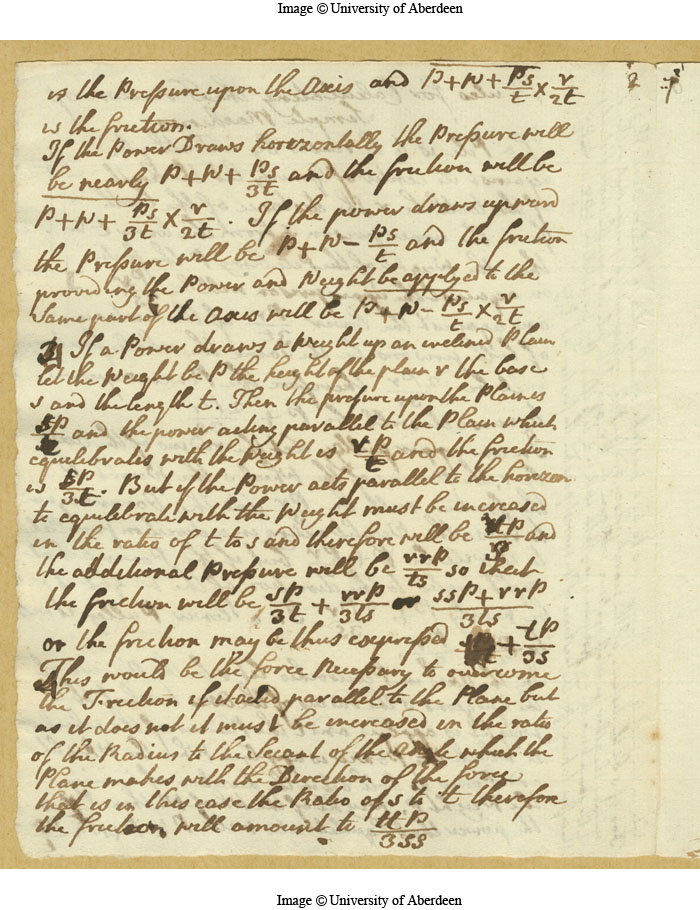 Image © University of Aberdeen
is the Pressure upon the Axis and P+W+ps/t × r/2t
is the friction.
If the Power Draws horozontally the Pressure will
be nearly P+W+ps/3t and the friction will be
P+W+ps/3t × r/2t. If the power draws upward
the Pressure will be P+W−ps/t and the friction
providing the Power and Weight be applyed to the
same part of the axis will be P+W−ps/t × r/2t
If a Power draws a Weight up an inclined Plain
let the Weight be P the height of the plain r the base
s and the length t. Then the presure upon the Plain is
sP/t and the power acting parallel to the Plain which
equilebrates with the Weight is rP/t and the friction
is sP/3t. But if the Power acts parallel to the horizon
to equilebrate with the Weight must be increased
in the ratio of t to s and therefore will be and
the additional Pressure will be rrP/ts so that
the friction will be sP/3t + rrP/3ts or ssP+rrP/3ts
or the friction may be thus expressed tP/3s
This would be the force Necessary to overcome
the Friction if it acted parallel to the Plane but
as it does not it must be increased in the ratio
of the Radius to the Secant of the angle which the
Plane makes with the Direction of the force
that is in this case the Ratio of s to t therefore
the friction will amount to ttP/3ss
Image © University of Aberdeen